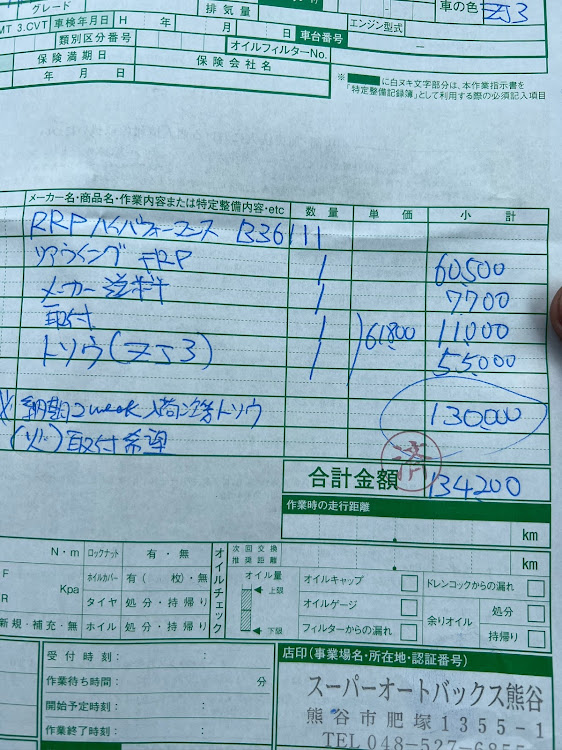 グレード
排気量
車の色 ZJ3
MT 3.CVT 車検年月日 H 年 月 日 車台番号 エンジン型式
類別区分番号 オイルフィルターNo.
保険満期日 保険会社名
年 月 日
※ に白ヌキ文字部分は、本作業指示書を
「特定整備記録簿」として利用する際の必須記入項目
メーカー名・商品名・作業内容または特定整備内容・etc 数量 単価 小計
RRP ハイパフォーマンス B36111
リアウイング FRP 1 60,500
メーカー送料 1 7,700
取付 1 61,800 11,000
トソウ(ZJ3) 1 55,000
※ 納期2week 入荷次第トソウ 130,000
(火)取付希望
済
合計金額 134,200
作業時の走行距離
km
N・m ロックナット 有・無 オイルチェック 次回交換推奨距離 km
F Kpa ホイルカバー 有( 枚)・無 オイル量 上限 オイルキャップ ドレンコックからの漏れ
R タイヤ 処分・持帰り オイルゲージ 余りオイル 処分
新規・補充・無 ホイル 処分・持帰り 下限 フィルターからの漏れ 持帰り
受付時刻: :
作業待ち時間: 分
開始予定時刻: :
作業終了時刻: :
店印(事業場名・所在地・認証番号)
スーパーオートバックス熊谷
熊谷市肥塚1355-1
TEL 048-527-